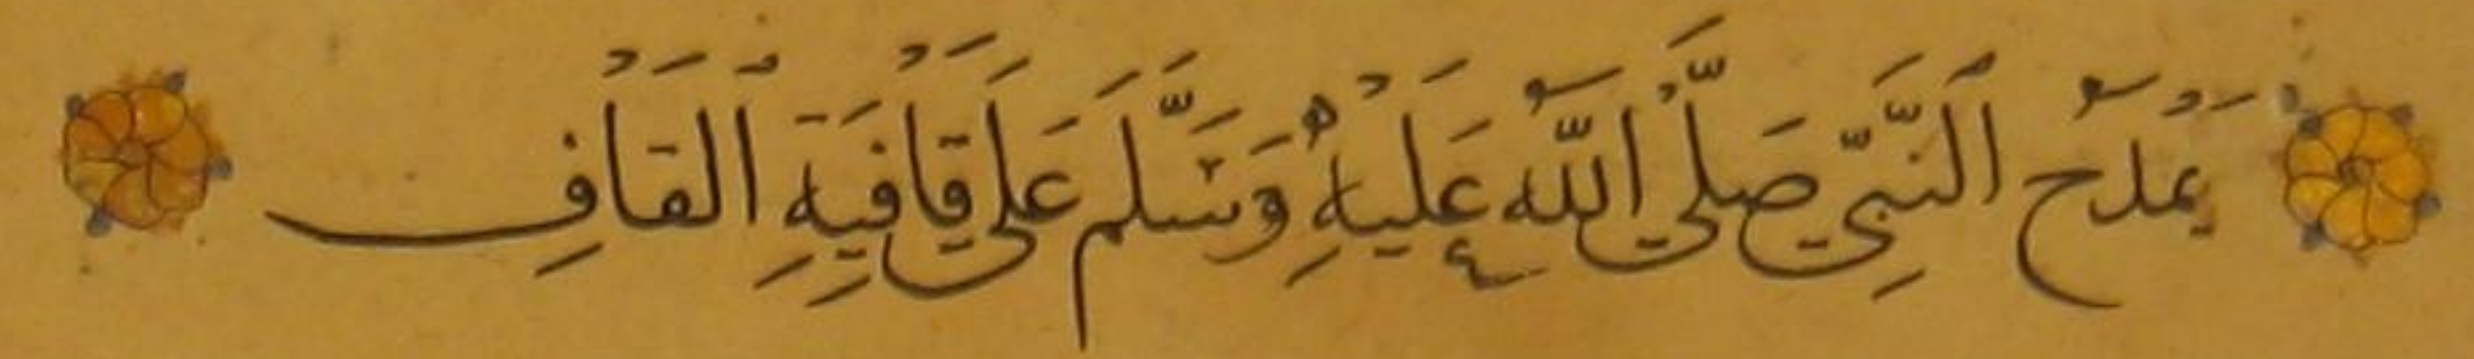 يَمْدَحُ ٱلنَّبِيَّ صَلَّى ٱللَّهُ عَلَيْهِ وَسَلَّمَ عَلَى قَافِيَةِ ٱلْقَافِ